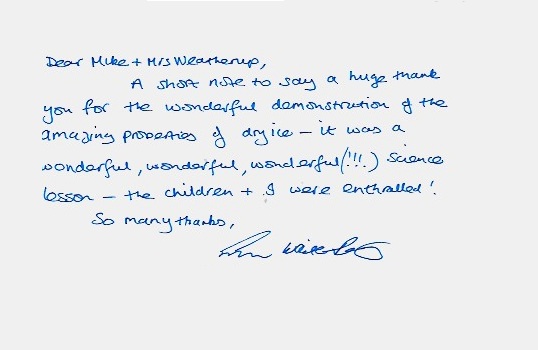 Dear Mike + Mrs Weatherup,
A short note to say a huge thank
you for the wonderful demonstration of the
amazing properties of dry ice – it was a
wonderful, wonderful, wonderful (!!!) science
lesson – the children + I were enthralled!
So many thanks,